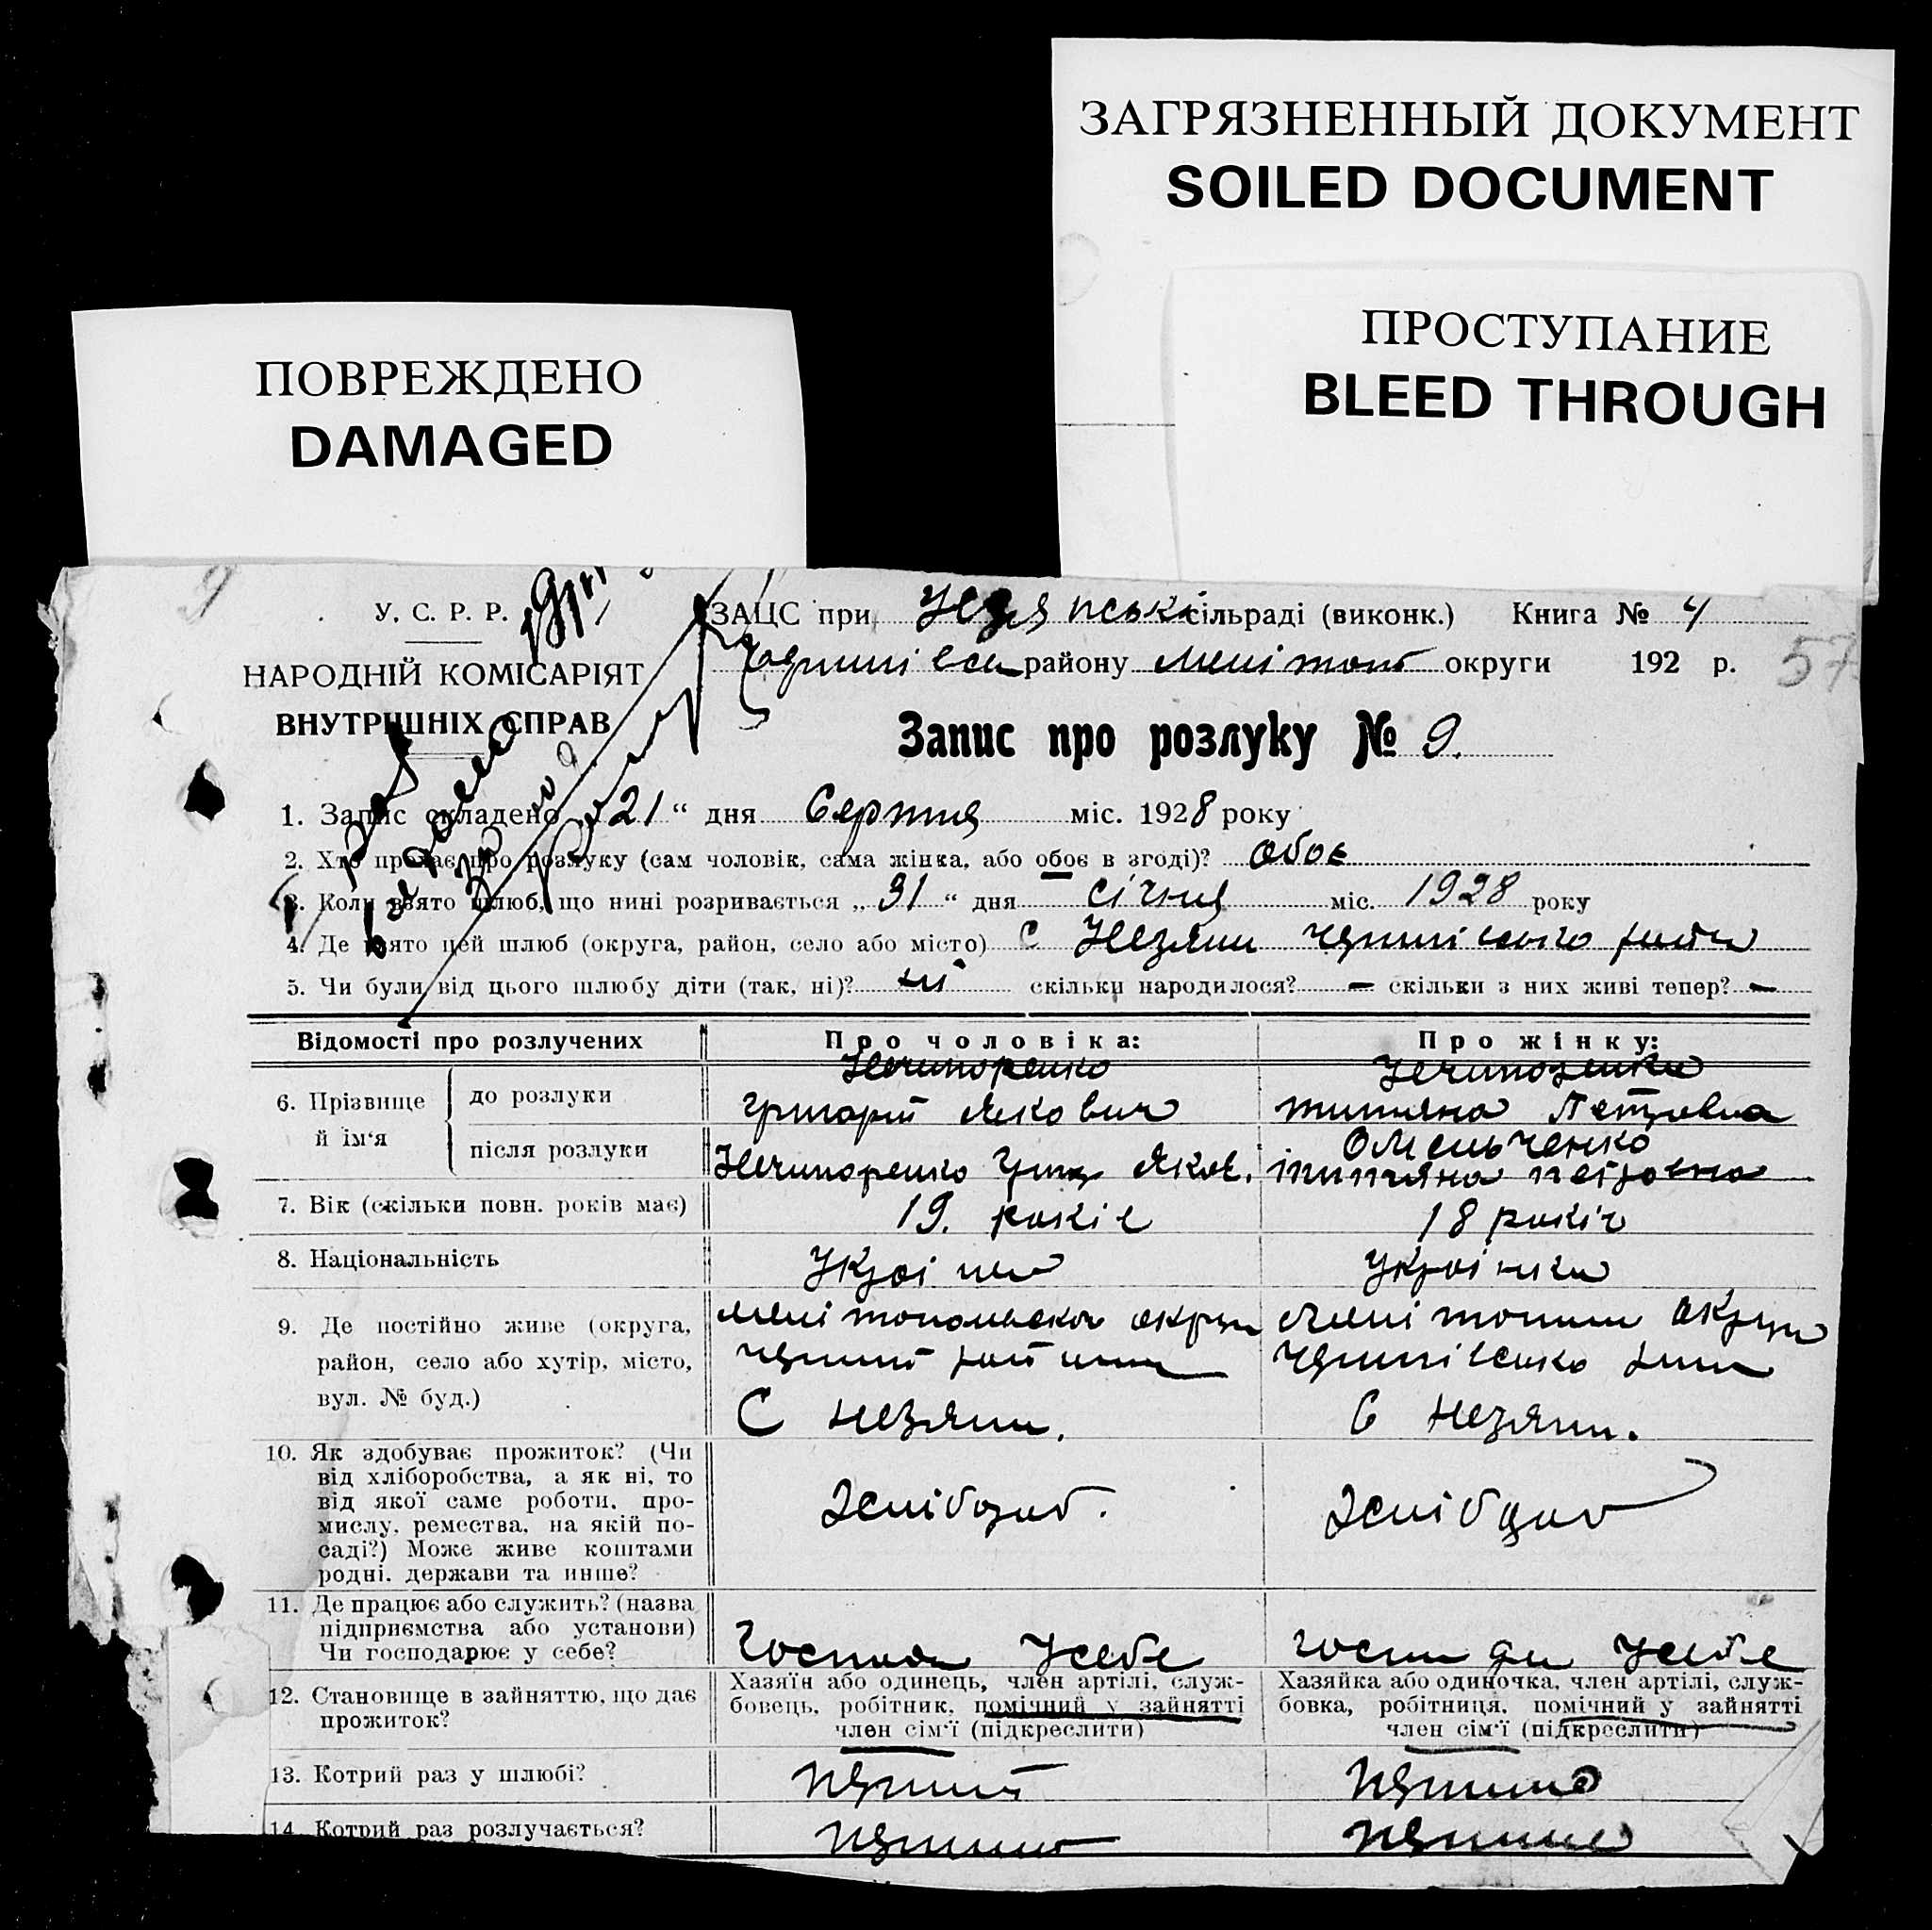 ЗАГРЯЗНЕННЫЙ ДОКУМЕНТ
SOILED DOCUMENT
ПРОСТУПАНИЕ
BLEED THROUGH
ПОВРЕЖДЕНО
DAMAGED
9
У. С. Р. Р.
НАРОДНІЙ КОМІСАРІЯТ
ВНУТРІШНІХ СПРАВ
ЗАЦС при сільраді (виконк.) Книга № 4
району Мелітоп округи 192 р.
57
Запис про розлуку № 9.
1. Запис складено „21“ дня Серпня міс. 1928 року
2. Хто прохає про розлуку (сам чоловік, сама жінка, або обоє в згоді)? обоє
3. Коли взято шлюб, що нині розривається „31“ дня січня міс. 1928 року
4. Де взято цей шлюб (округа, район, село або місто) С
5. Чи були від цього шлюбу діти (так, ні)? ні скільки народилося? — скільки з них живі тепер? —
Відомості про розлучених
Про чоловіка:
Про жінку:
6. Прізвище й ім‘я
до розлуки
Нечипоренко
Григорій Якович
Нечипоренко
Титяна Петровна
після розлуки
Нечипоренко Григ Яков.
Омельченко
Титяна петровна
7. Вік (скільки повн. років має)
19. років
18 років
8. Національність
Українец
Українка
9. Де постійно живе (округа,
район, село або хутір, місто,
вул. № буд.)
10. Як здобуває прожиток? (Чи
від хліборобства, а як ні, то
від якої саме роботи, про-
мислу, ремества, на якій по-
саді?) Може живе коштами
родні, держави та инше?
Хлібороб.
Хлібороб
11. Де працює або служить? (назва
підприємства або установи)
Чи господарює у себе?
Господи Усебе
господи Усебе
12. Становище в зайняттю, що дає
прожиток?
Хазяїн або одинець, член артілі, служ-
бовець, робітник, помічний у зайнятті
член сім‘ї (підкреслити)
Хазяйка або одиночка, член артілі, служ-
бовка, робітниця, помічний у зайнятті
член сім‘ї (підкреслити)
13. Котрий раз у шлюбі?
перший
перший
14. Котрий раз розлучається?
перший
перший